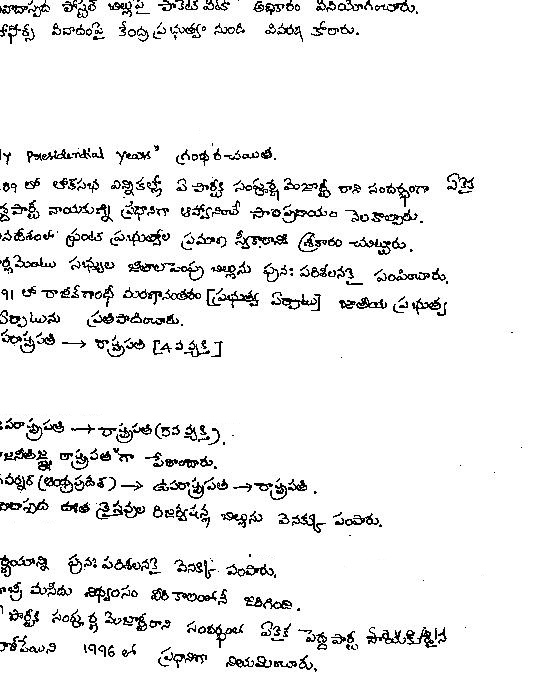 పోస్టల్ బిల్లుపై పాకెట్ వీటో అధికారం వినియోగించారు.
వివాదంపై కేంద్ర ప్రభుత్వం నుండి వివరణ కోరారు.
My Presidential Years" గ్రంథ రచయిత.
89 లో లోక్‌సభ ఎన్నికల్లో ఏ పార్టీకి సంపూర్ణ మెజార్టీ రాని సందర్భంగా ఏకైక
పార్టీ నాయకుణ్ణి ప్రధానిగా ఆహ్వానించే సాంప్రదాయం నెలకొల్పారు.
ప్రభుత్వాల ప్రమాణ స్వీకారానికి శ్రీకారం చుట్టారు.
సభ్యుల జీతాల పెంపు బిల్లును పునః పరిశీలనకై పంపించారు.
91 లో రాజీవ్‌గాంధీ మరణానంతరం [ప్రభుత్వ ఏర్పాటు] జాతీయ ప్రభుత్వ
ఏర్పాటును ప్రతిపాదించారు.
పరాష్ట్రపతి → రాష్ట్రపతి [4 వ వ్యక్తి]
పరాష్ట్రపతి → రాష్ట్రపతి ( వ వ్యక్తి).
రాష్ట్రపతి"గా పేరొందారు.
వర్నర్ (ఆంధ్రప్రదేశ్) → ఉపరాష్ట్రపతి → రాష్ట్రపతి.
క్రైస్తవుల రిజర్వేషన్ల బిల్లును వెనక్కి పంపారు.
పునః పరిశీలనకై వెనక్కి పంపారు.
బ్రీ మసీదు విధ్వంసం వీరి కాలంలోనే జరిగింది.
పార్టీకి సంపూర్ణ మెజార్టీ రాని సందర్భంలో ఏకైక పెద్ద పార్టీ నాయకుడైన
వాజ్‌పేయిని 1996 లో ప్రధానిగా నియమించారు.